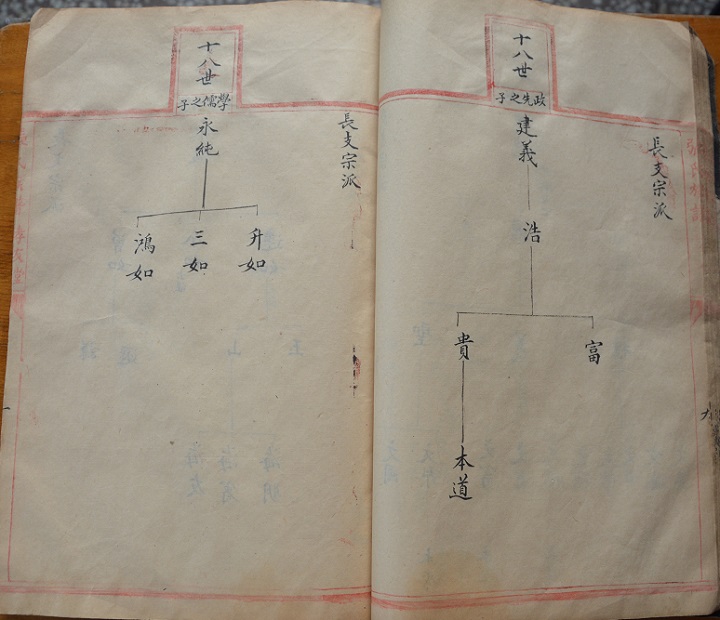 十八世
政先之子
長支宗派
建義
浩
富
貴
本道
十八世
學儒之子
長支宗派
永純
升如
三如
鴻如